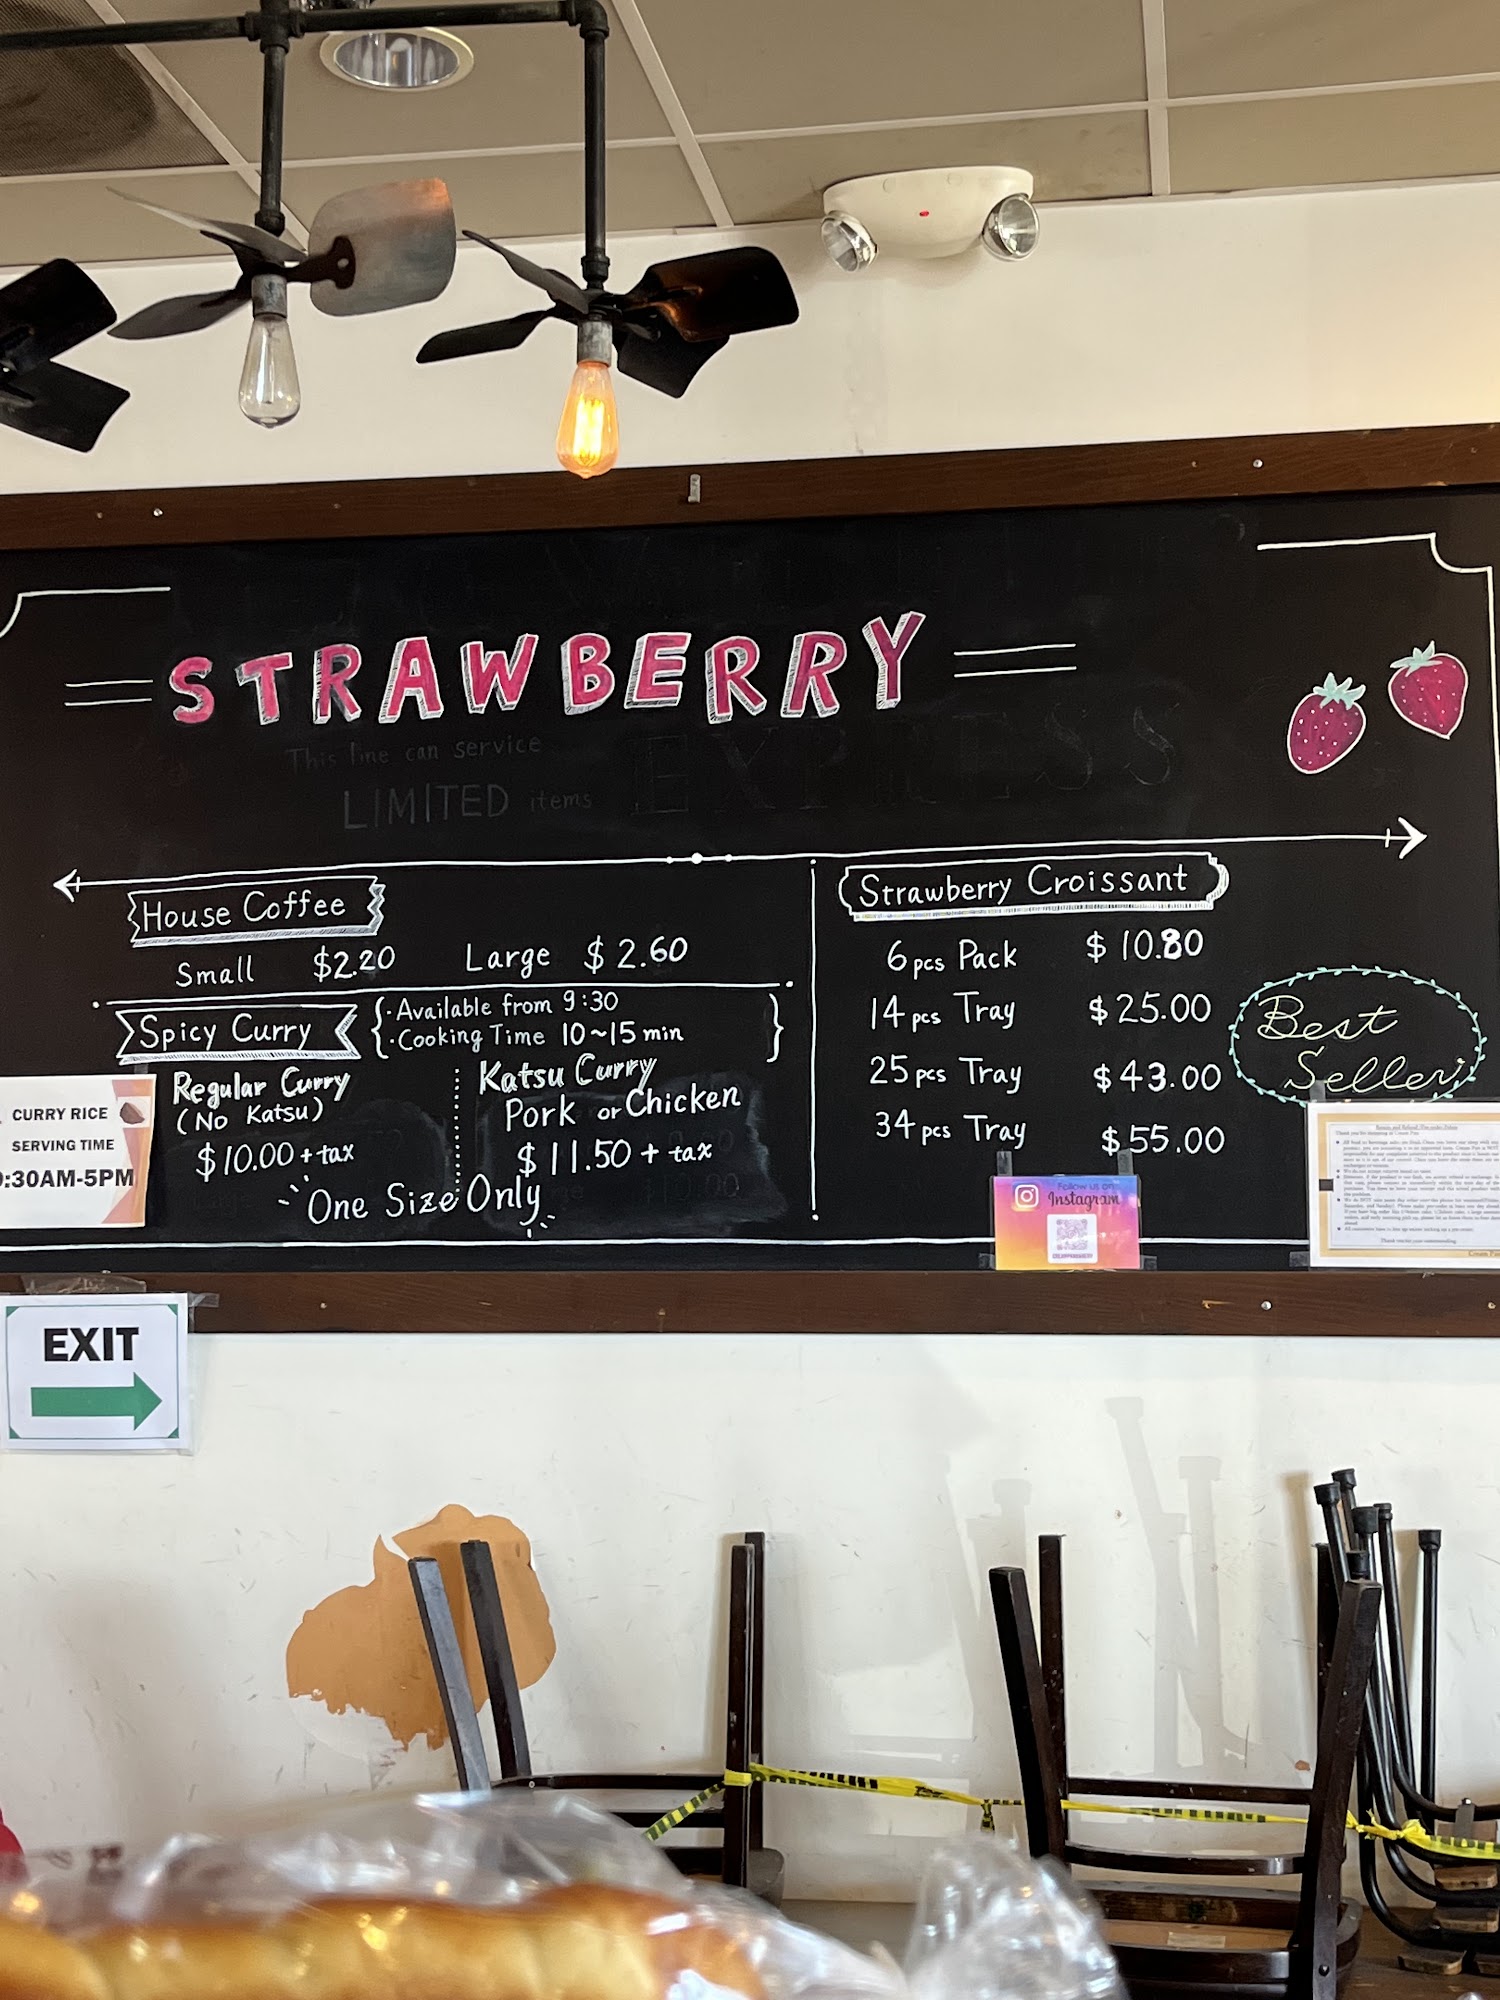 STRAWBERRY
This line can service
LIMITED items
EXPRESS
House Coffee
Small $2.20 Large $2.60
Spicy Curry
· Available from 9:30
· Cooking Time 10~15 min
Regular Curry
(No Katsu)
$10.00 + tax
Katsu Curry
Pork or Chicken
$11.50 + tax
One Size Only
Strawberry Croissant
6 pcs Pack $10.80
14 pcs Tray $25.00
25 pcs Tray $43.00
34 pcs Tray $55.00
Best
Seller
CURRY RICE
SERVING TIME
:30AM-5PM
Follow us on
Instagram
Thank you for your understanding
EXIT